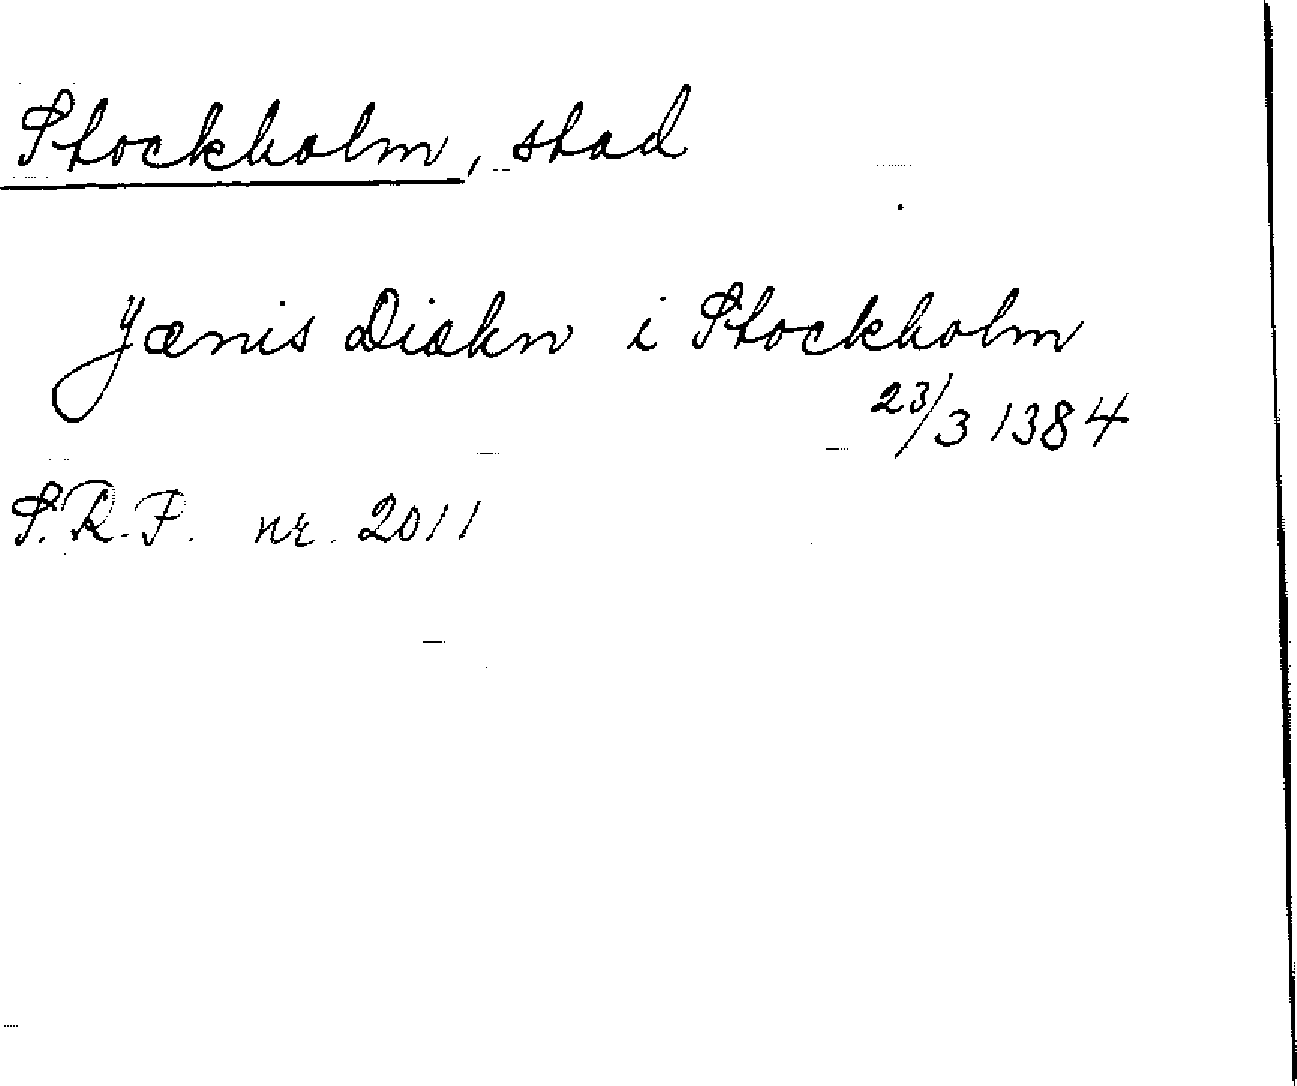 Stockholm, stad
Jænis Diækn i Stockholm
23/3 1384
S.R.P. nr. 2011